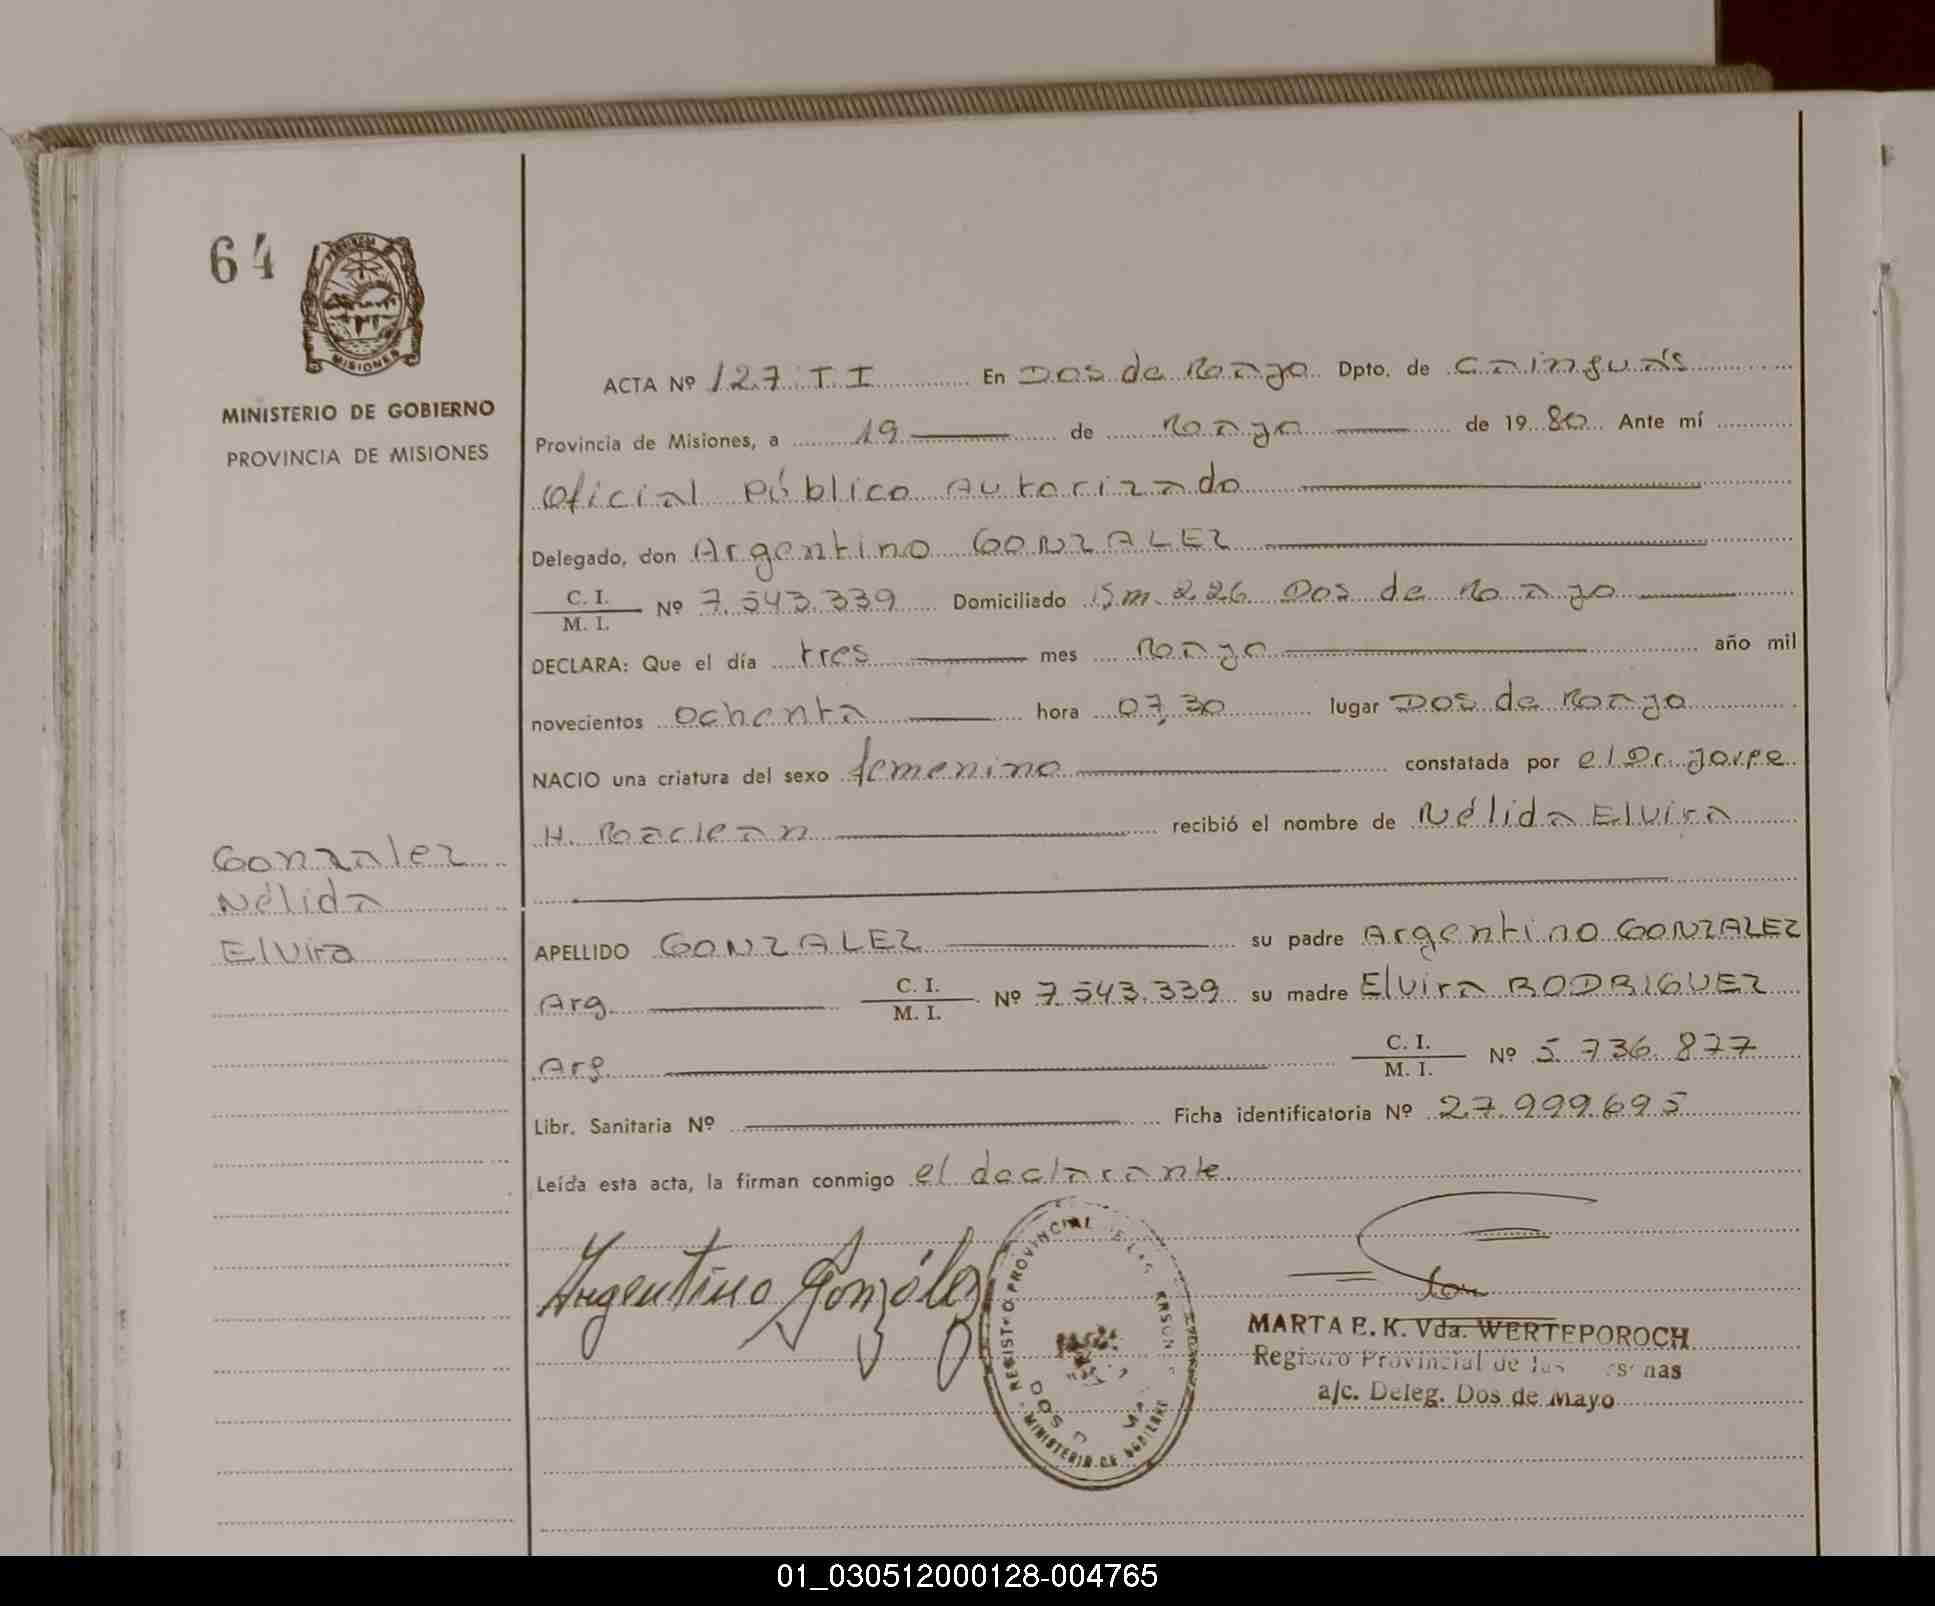 64
PROVINCIA
MISIONES
MINISTERIO DE GOBIERNO
PROVINCIA DE MISIONES
ACTA Nº 127 T I En Dos de Mayo Dpto. de Cainguás
Provincia de Misiones, a 19 de Mayo de 1980 Ante mí
Oficial Público Autorizado
Delegado, don Argentino GONZALEZ
C. I.
M. I. Nº 7.543.339 Domiciliado Km. 226 Dos de Mayo
DECLARA: Que el día tres mes Mayo año mil
novecientos ochenta hora 07,30 lugar Dos de Mayo
NACIO una criatura del sexo femenino constatada por el Dr. Jorge
H. Maclean recibió el nombre de Nélida Elvira
Gonzalez
Nélida
Elvira
APELLIDO GONZALEZ su padre Argentino GONZALEZ
Arg. C. I.
M. I. Nº 7.543.339 su madre Elvira RODRIGUEZ
Arg. C. I.
M. I. Nº 5.736.877
Libr. Sanitaria Nº Ficha identificatoria Nº 27.999.695
Leída esta acta, la firman conmigo el declarante
Argentino Gonzáles
PROVINCIAL
MINISTERIO DE
DOS
MARTA E. K. Vda. WERTEPOROCH
Registro Provincial de las
a/c. Deleg. Dos de Mayo
01_030512000128-004765